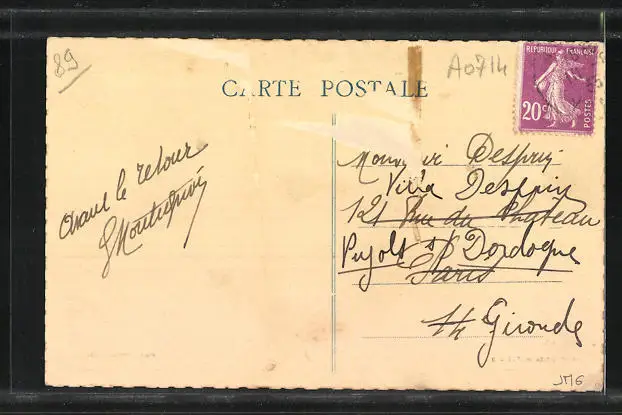 89
A0714
RÉPUBLIQUE FRANÇAISE
20c
POSTES
CARTE POSTALE
Avant le retour
Monsieur Desprin
Villa Desprin
121 Rue du Chateau
Pujols s/ Dordogne
Paris
14 Gironde
JMG